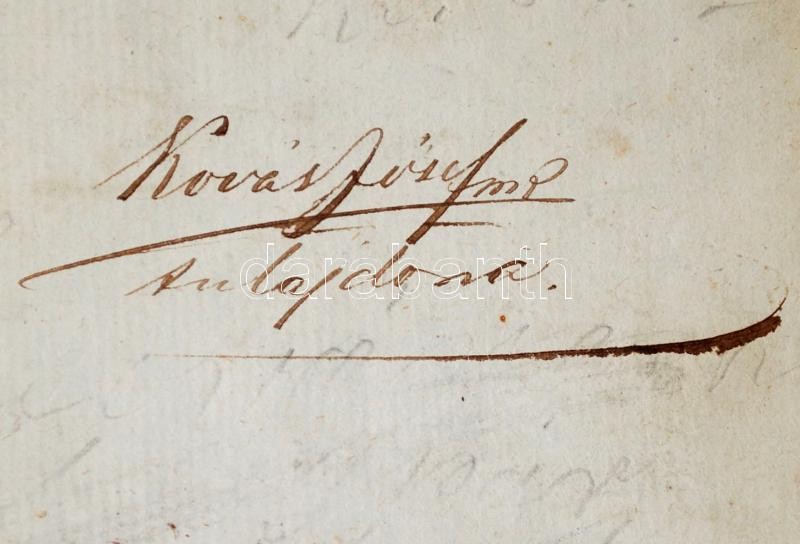 Kovás Jósef mp
tulajdona.
darabanth